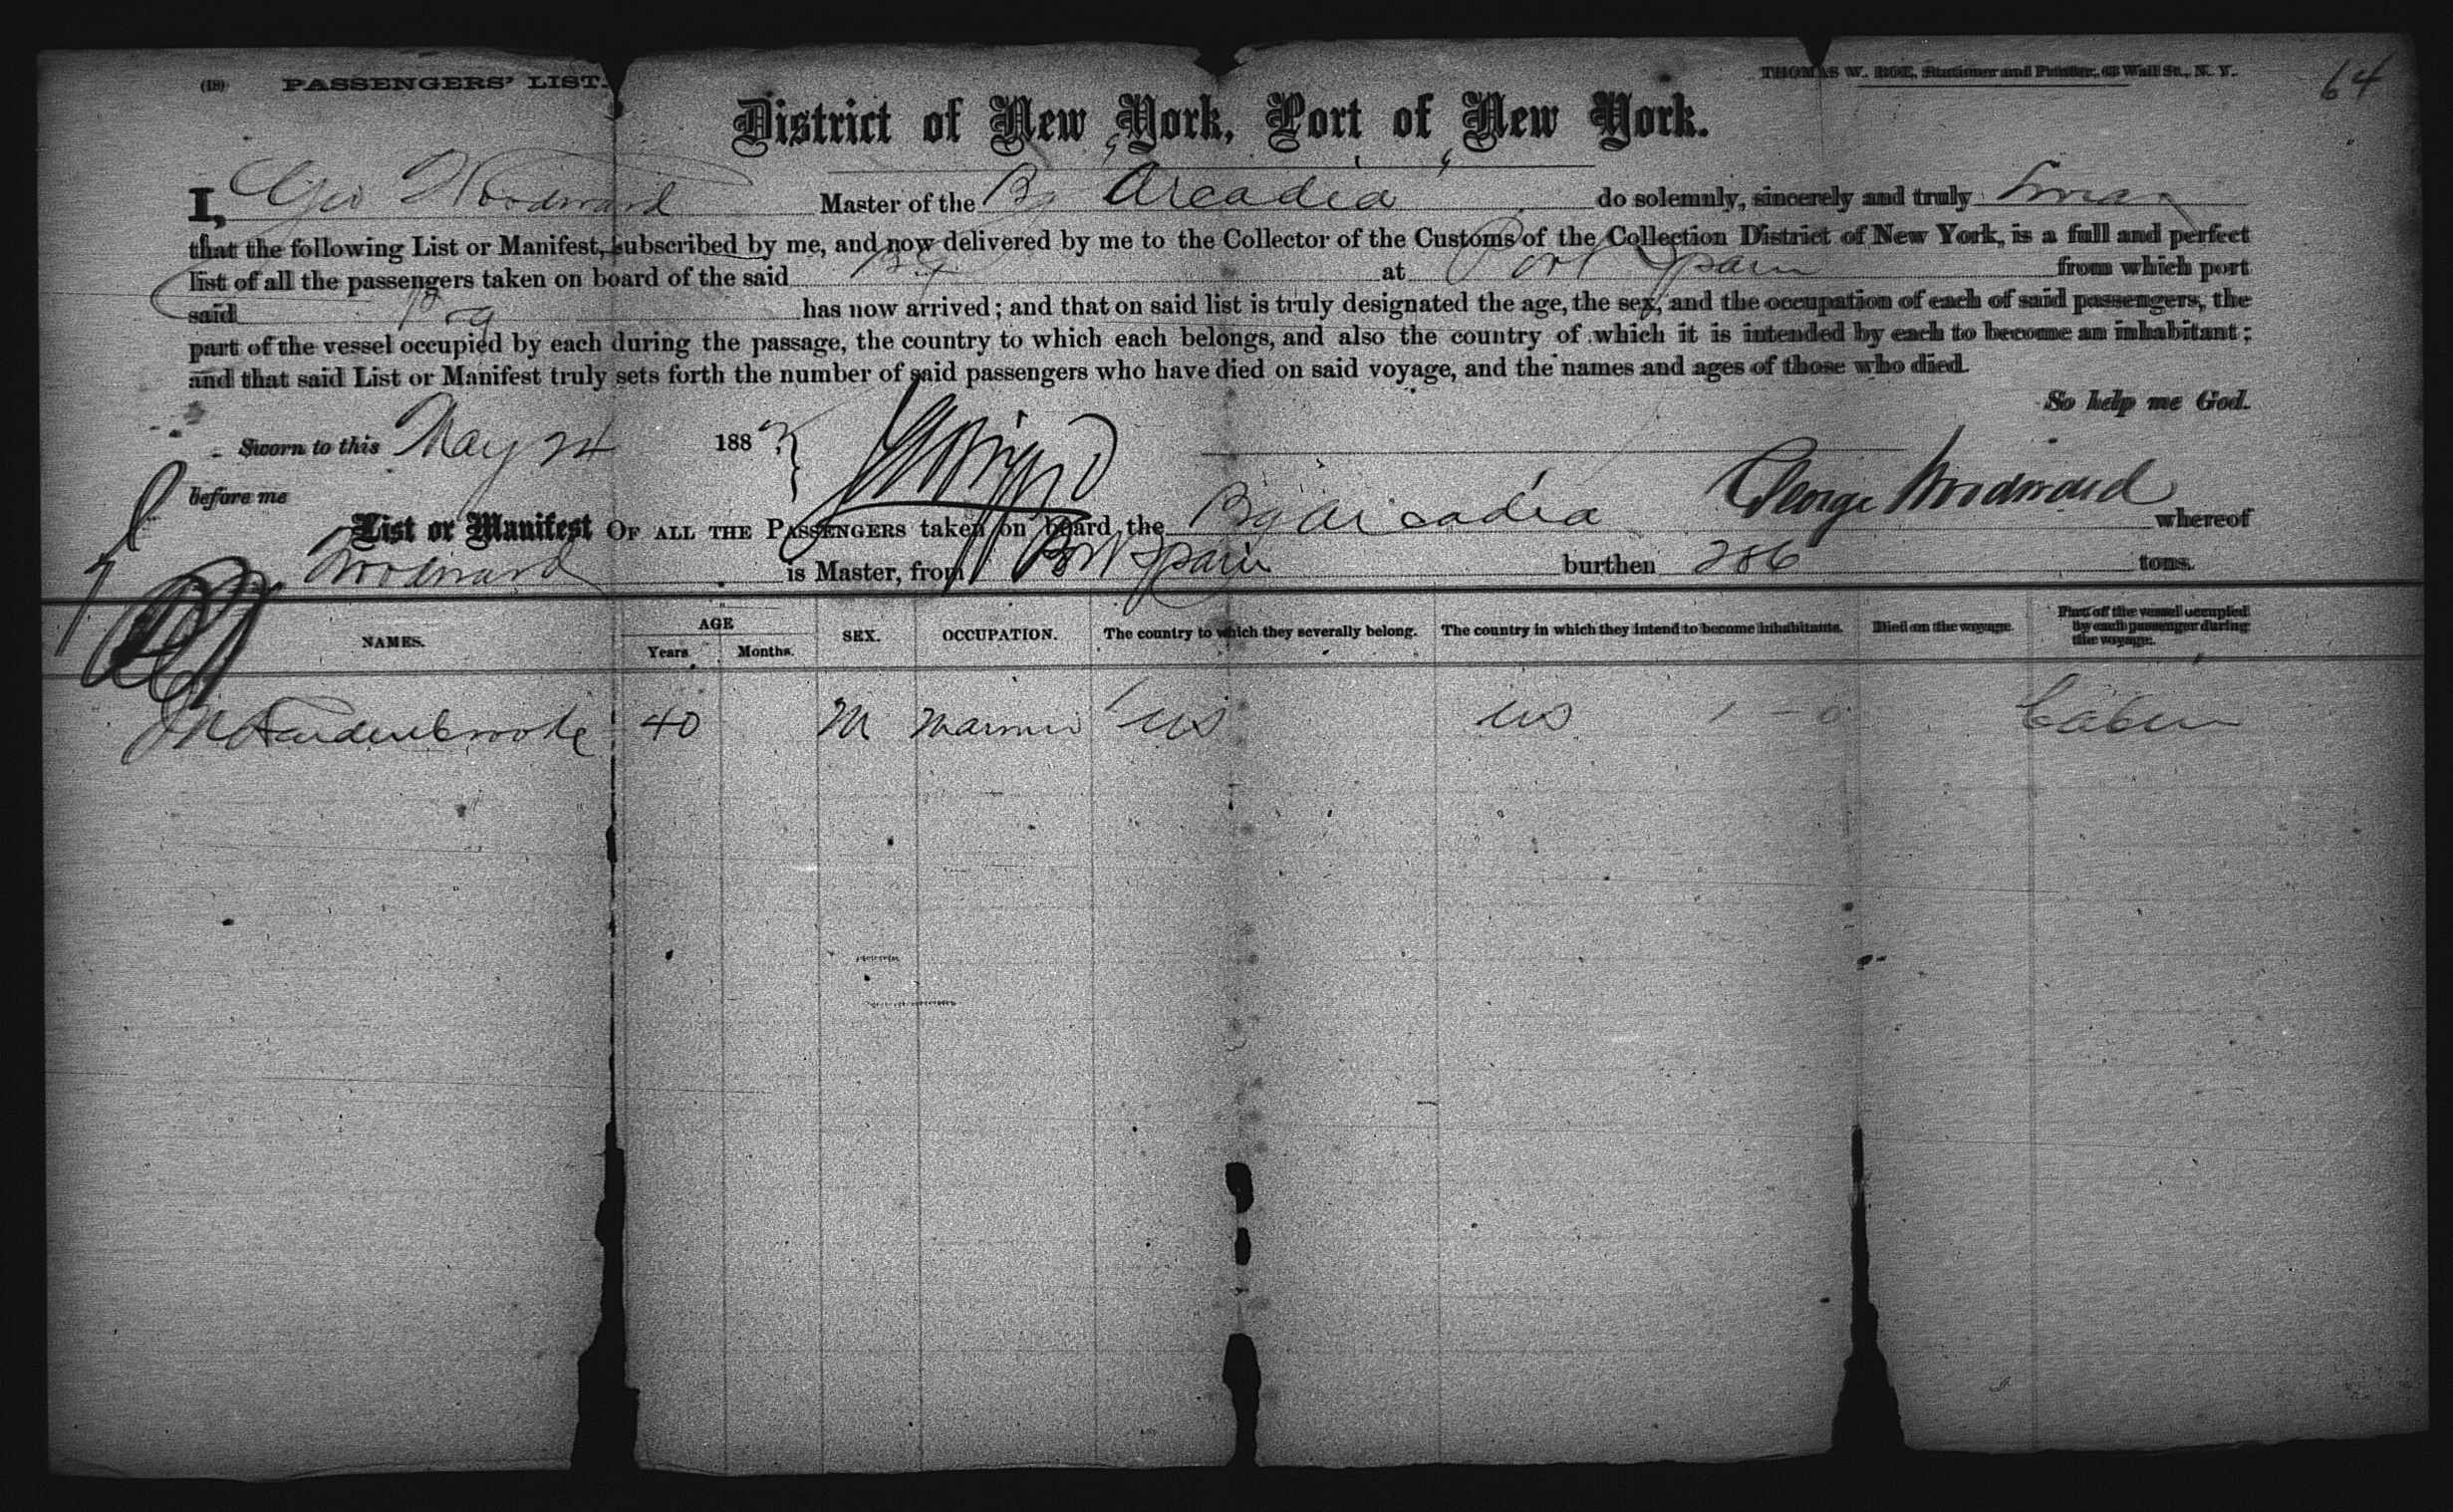 (18) PASSENGERS' LIST. THOMAS W. ROE, Stationer and Printer, 63 Wall St., N. Y. 64
District of New York, Port of New York.
I, Geo Woodward Master of the Bg Arcadia do solemnly, sincerely and truly Swear
that the following List or Manifest, subscribed by me, and now delivered by me to the Collector of the Customs of the Collection District of New York, is a full and perfect
list of all the passengers taken on board of the said Bg at Port Spain from which port
said Bg has now arrived; and that on said list is truly designated the age, the sex, and the occupation of each of said passengers, the
part of the vessel occupied by each during the passage, the country to which each belongs, and also the country of which it is intended by each to become an inhabitant;
and that said List or Manifest truly sets forth the number of said passengers who have died on said voyage, and the names and ages of those who died.
So help me God.
Sworn to this May 24 188
before me George Woodward
List or Manifest OF ALL THE PASSENGERS taken on board the Bg Arcadia whereof
Woodward is Master, from Port Spain burthen 286 tons.
NAMES. AGE Years Months. SEX. OCCUPATION. The country to which they severally belong. The country in which they intend to become inhabitants. Died on the voyage. Part of the vessel occupied by each passenger during the voyage.
40 M Mariner US US Cabin